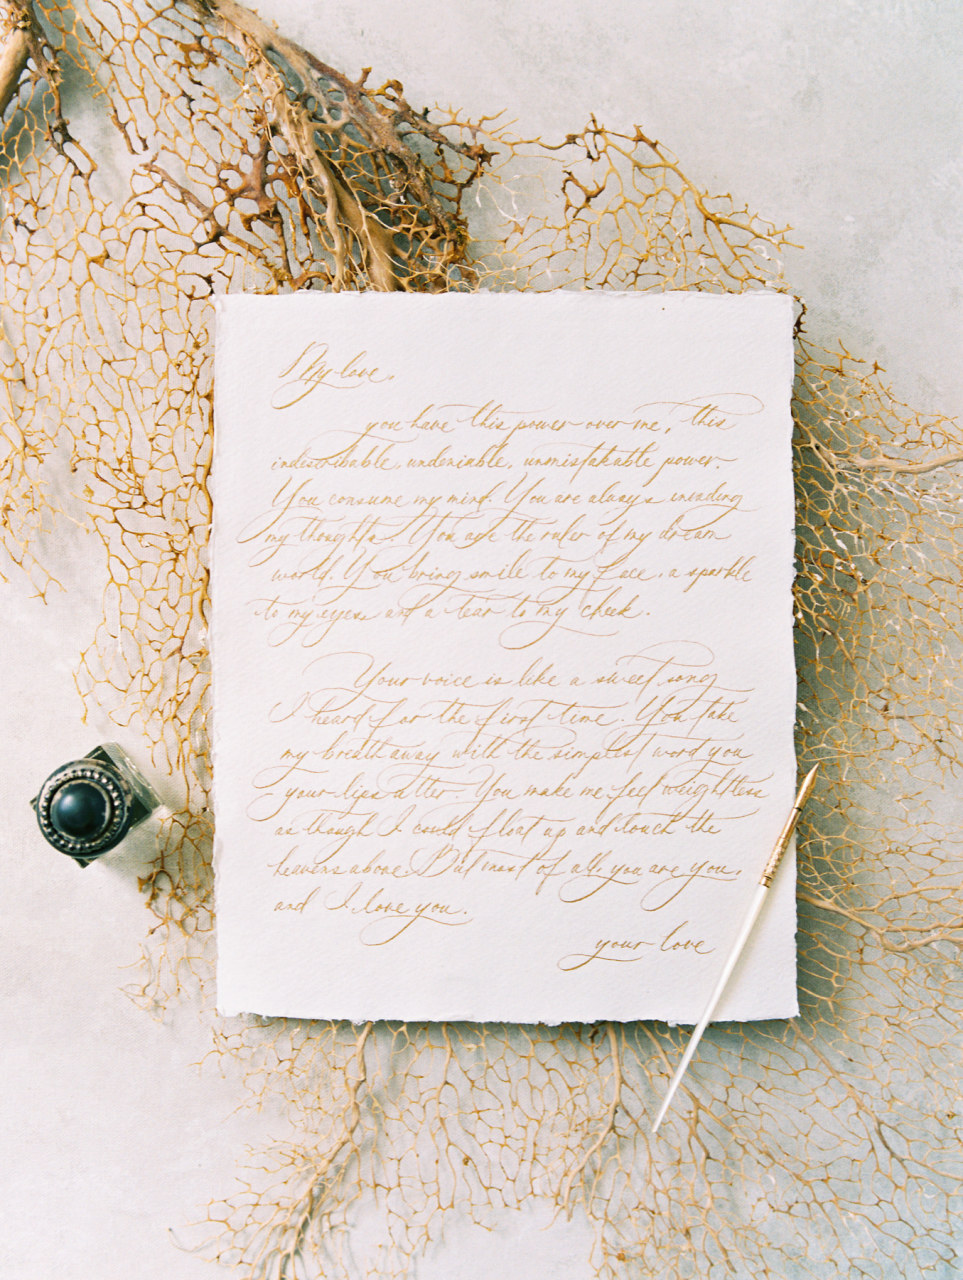 My love,
you have this power over me, this
indescribable, undeniable, unmistakable power.
You consume my mind. You are always invading
my thoughts. You are the ruler of my dream
world. You bring smile to my face, a sparkle
to my eyes and a tear to my cheek.
Your voice is like a sweet song
I heard for the first time. You take
my breath away with the simplest word you
your lips utter. You make me feel weightless
as though I could float up and touch the
heavens above. But most of all, you are you,
and I love you.
your love